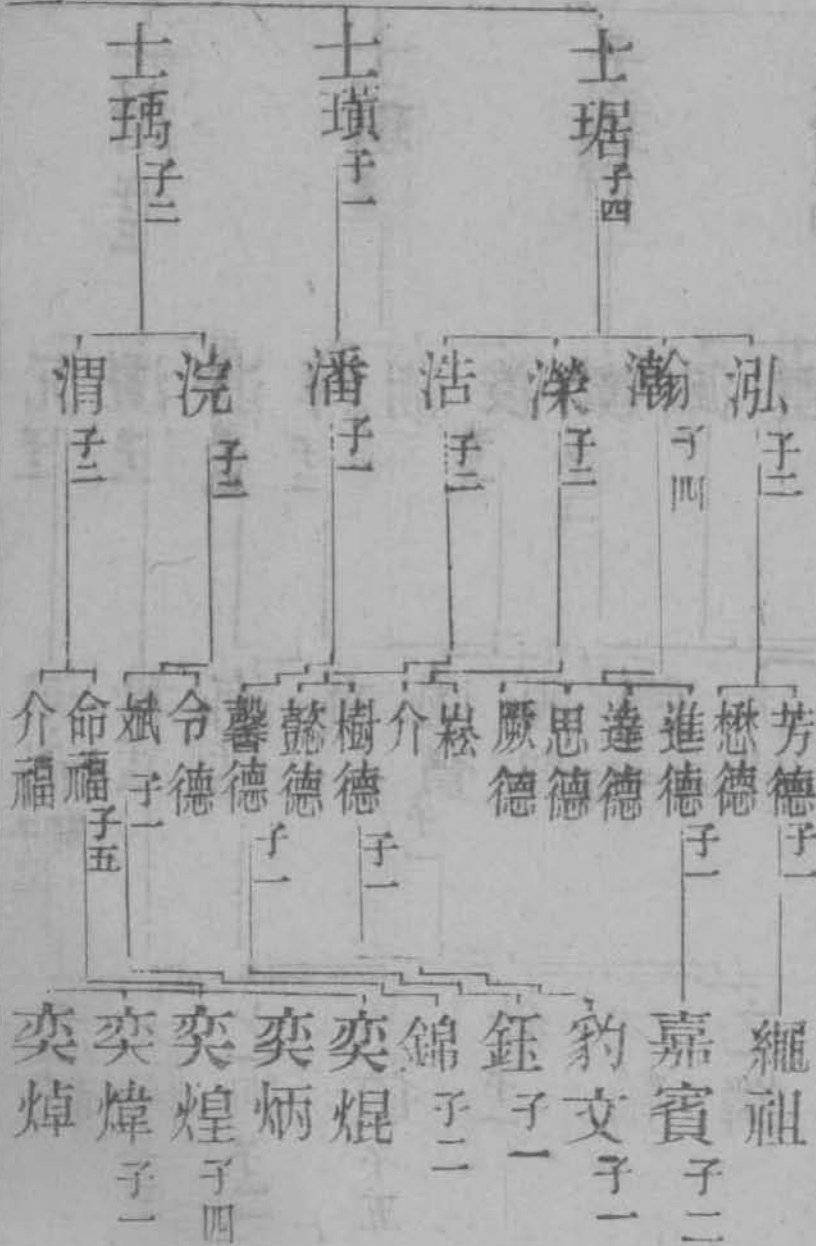 士琚 子四
士璜 子一
士瑀 子二
泓 子二
瀚 子四
濚 子二
浩 子二
潘 子一
浣 子二
渭 子二
芳德 子一
懋德
進德 子一
達德
思德
厥德
崧
介
樹德 子一
懿德
馨德 子一
令德
斌 子一
命福 子五
介福
繩祖
嘉賓 子二
豹文 子一
鈺 子一
錦 子二
奕焜
奕炳
奕煌 子四
奕煒 子一
奕焯